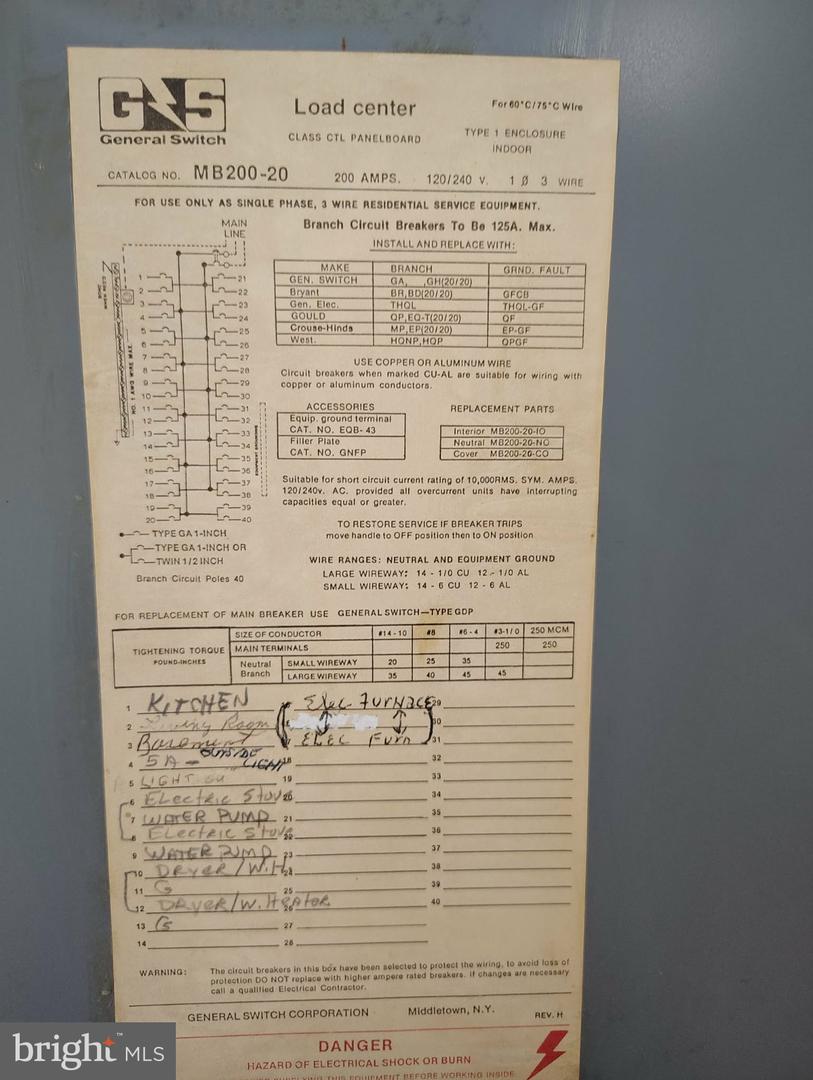 GS
General Switch
Load center
For 60°C/75°C Wire
CLASS CTL PANELBOARD
TYPE 1 ENCLOSURE
INDOOR
CATALOG NO. MB200-20 200 AMPS. 120/240 V. 1 Ø 3 WIRE
FOR USE ONLY AS SINGLE PHASE, 3 WIRE RESIDENTIAL SERVICE EQUIPMENT.
MAIN
LINE
Branch Circuit Breakers To Be 125A. Max.
INSTALL AND REPLACE WITH:
MAKE BRANCH GRND. FAULT
GEN. SWITCH GA, ,GH(20/20)
Bryant BR,BD(20/20) GFCB
Gen. Elec. THQL THQL-GF
GOULD QP,EQ-T(20/20) QF
Crouse-Hinds MP,EP(20/20) EP-GF
West. HQNP,HQP QPGF
1 21
2 22
3 23
4 24
5 25
6 26
7 27
8 28
9 29
10 30
11 31
12 32
13 33
14 34
15 35
16 36
17 37
18 38
19 39
20 40
NO. 1 AWG WIRE MAX.
EQUIPMENT GROUNDING
USE COPPER OR ALUMINUM WIRE
Circuit breakers when marked CU-AL are suitable for wiring with
copper or aluminum conductors.
ACCESSORIES
Equip. ground terminal
CAT. NO. EQB-43
Filler Plate
CAT. NO. GNFP
REPLACEMENT PARTS
Interior MB200-20-IO
Neutral MB200-20-NO
Cover MB200-20-CO
Suitable for short circuit current rating of 10,000RMS. SYM. AMPS.
120/240v. AC. provided all overcurrent units have interrupting
capacities equal or greater.
TO RESTORE SERVICE IF BREAKER TRIPS
move handle to OFF position then to ON position
TYPE GA 1-INCH
TYPE GA 1-INCH OR
TWIN 1/2 INCH
Branch Circuit Poles 40
WIRE RANGES: NEUTRAL AND EQUIPMENT GROUND
LARGE WIREWAY: 14 - 1/0 CU 12 - 1/0 AL
SMALL WIREWAY: 14 - 6 CU 12 - 6 AL
FOR REPLACEMENT OF MAIN BREAKER USE GENERAL SWITCH—TYPE GDP
TIGHTENING TORQUE
POUND-INCHES
SIZE OF CONDUCTOR #14-10 #8 #6-4 #3-1/0 250 MCM
MAIN TERMINALS 250 250
Neutral Branch
SMALL WIREWAY 20 25 35
LARGE WIREWAY 35 40 45 45
1 KITCHEN Elec FURNACE 29
2 Living Room 30
3 Basement ELEC Furn 31
4 5A - OUTSIDE LIGHT 18 32
5 LIGHT 19 33
6 Electric Stove 20 34
7 WATER PUMP 21 35
8 Electric Stove 22 36
9 WATER PUMP 23 37
10 DRYER/W.H. 24 38
11 G 25 39
12 DRYER/W.HEATOR 26 40
13 G 27
14 28
WARNING: The circuit breakers in this box have been selected to protect the wiring, to avoid loss of
protection DO NOT replace with higher ampere rated breakers. If changes are necessary
call a qualified Electrical Contractor.
GENERAL SWITCH CORPORATION Middletown, N.Y. REV. H
DANGER
HAZARD OF ELECTRICAL SHOCK OR BURN
SUPPLYING THIS EQUIPMENT BEFORE WORKING INSIDE
bright MLS